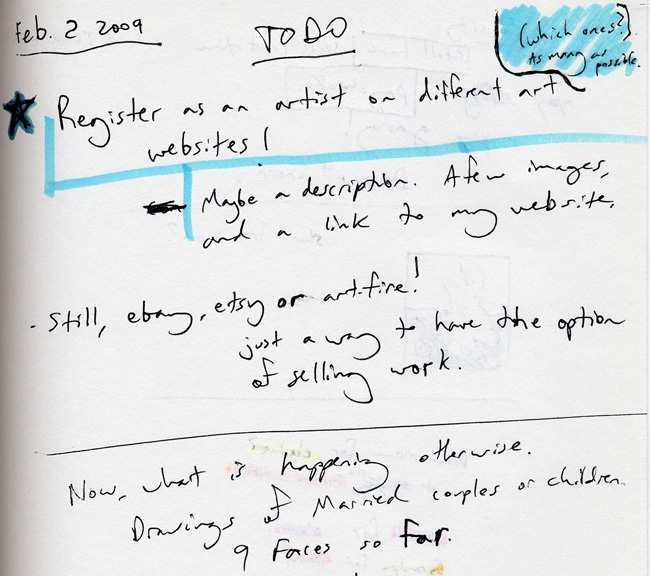 Feb. 2 2009
TODO
(which ones?)
As many as
possible.
Register as an artist on different art
websites!
Maybe a description. A few images,
and a link to my website.
- Still, ebay, etsy or art-fire!
just a way to have the option
of selling work.
Now, what is happening otherwise.
Drawings of Married couples or children.
9 Faces so far.